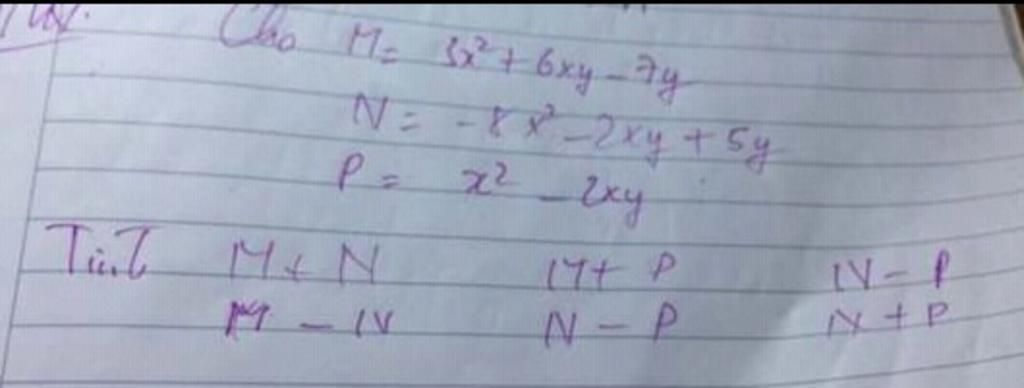 Cho M = 3x² + 6xy - 7y
N = -8x² - 2xy + 5y
P = x² - 2xy
Tính M + N M + P N - P
M - N N - P N + P